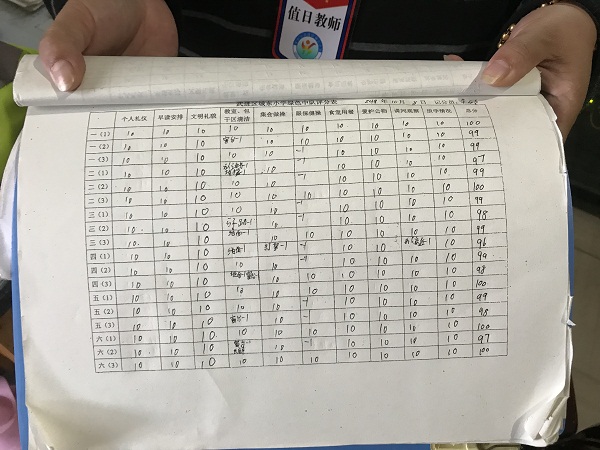 值日教师
小学绿色中队评分表 2018年10月8日 记分员:
个人礼仪 早读安排 文明礼貌 教室、包干区清洁 集合做操 眼保健操 食宽用餐 爱护公物 课间观察 放学情况 总分
一(1) 10 10 10 10 10 10 10 10 10 10 100
一(2) 10 10 10 -1 10 10 10 10 10 10 99
一(3) 10 10 10 10 10 -1 10 10 10 10 99
二(1) 10 10 10 10 -1 10 10 10 10 97
二(2) 10 10 10 10 10 -1 10 10 10 10 99
二(3) 10 10 10 10 10 10 10 10 10 10 100
三(1) 10 10 10 10 10 -1 10 10 10 10 99
三(2) 10 10 10 -1 10 10 10 10 10 98
三(3) 10 10 10 -1 10 10 10 10 10 10 99
四(1) 10 10 10 -1 -1 -1 10 10 -1 10 96
四(2) 10 10 10 10 10 -1 10 10 10 10 99
四(3) 10 10 10 10 10 10 10 10 10 98
五(1) 10 10 10 10 10 10 10 10 10 10 100
五(2) 10 10 10 10 10 -1 10 10 10 10 99
五(3) 10 10 10 -1 10 -1 10 10 10 10 98
六(1) 10 10 10 10 10 10 10 10 10 10 100
六(2) 10 10 10 10 -1 10 10 10 10 97
六(3) 10 10 10 10 10 10 10 10 10 10 100